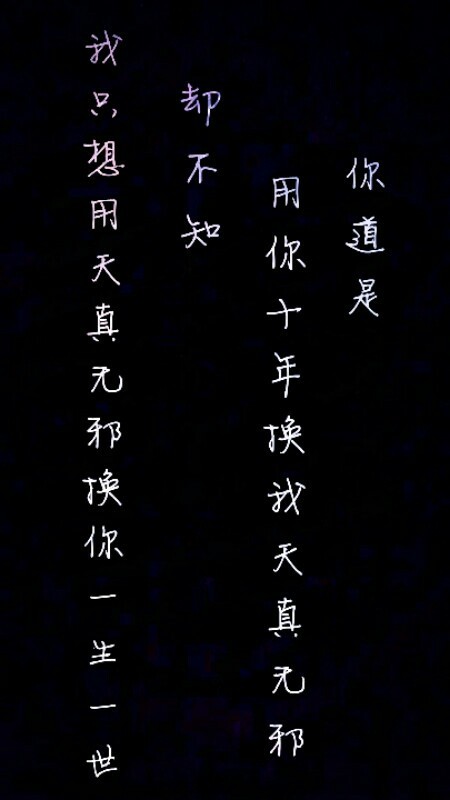 你道是
用你十年换我天真无邪
却不知
我只想用天真无邪换你一生一世